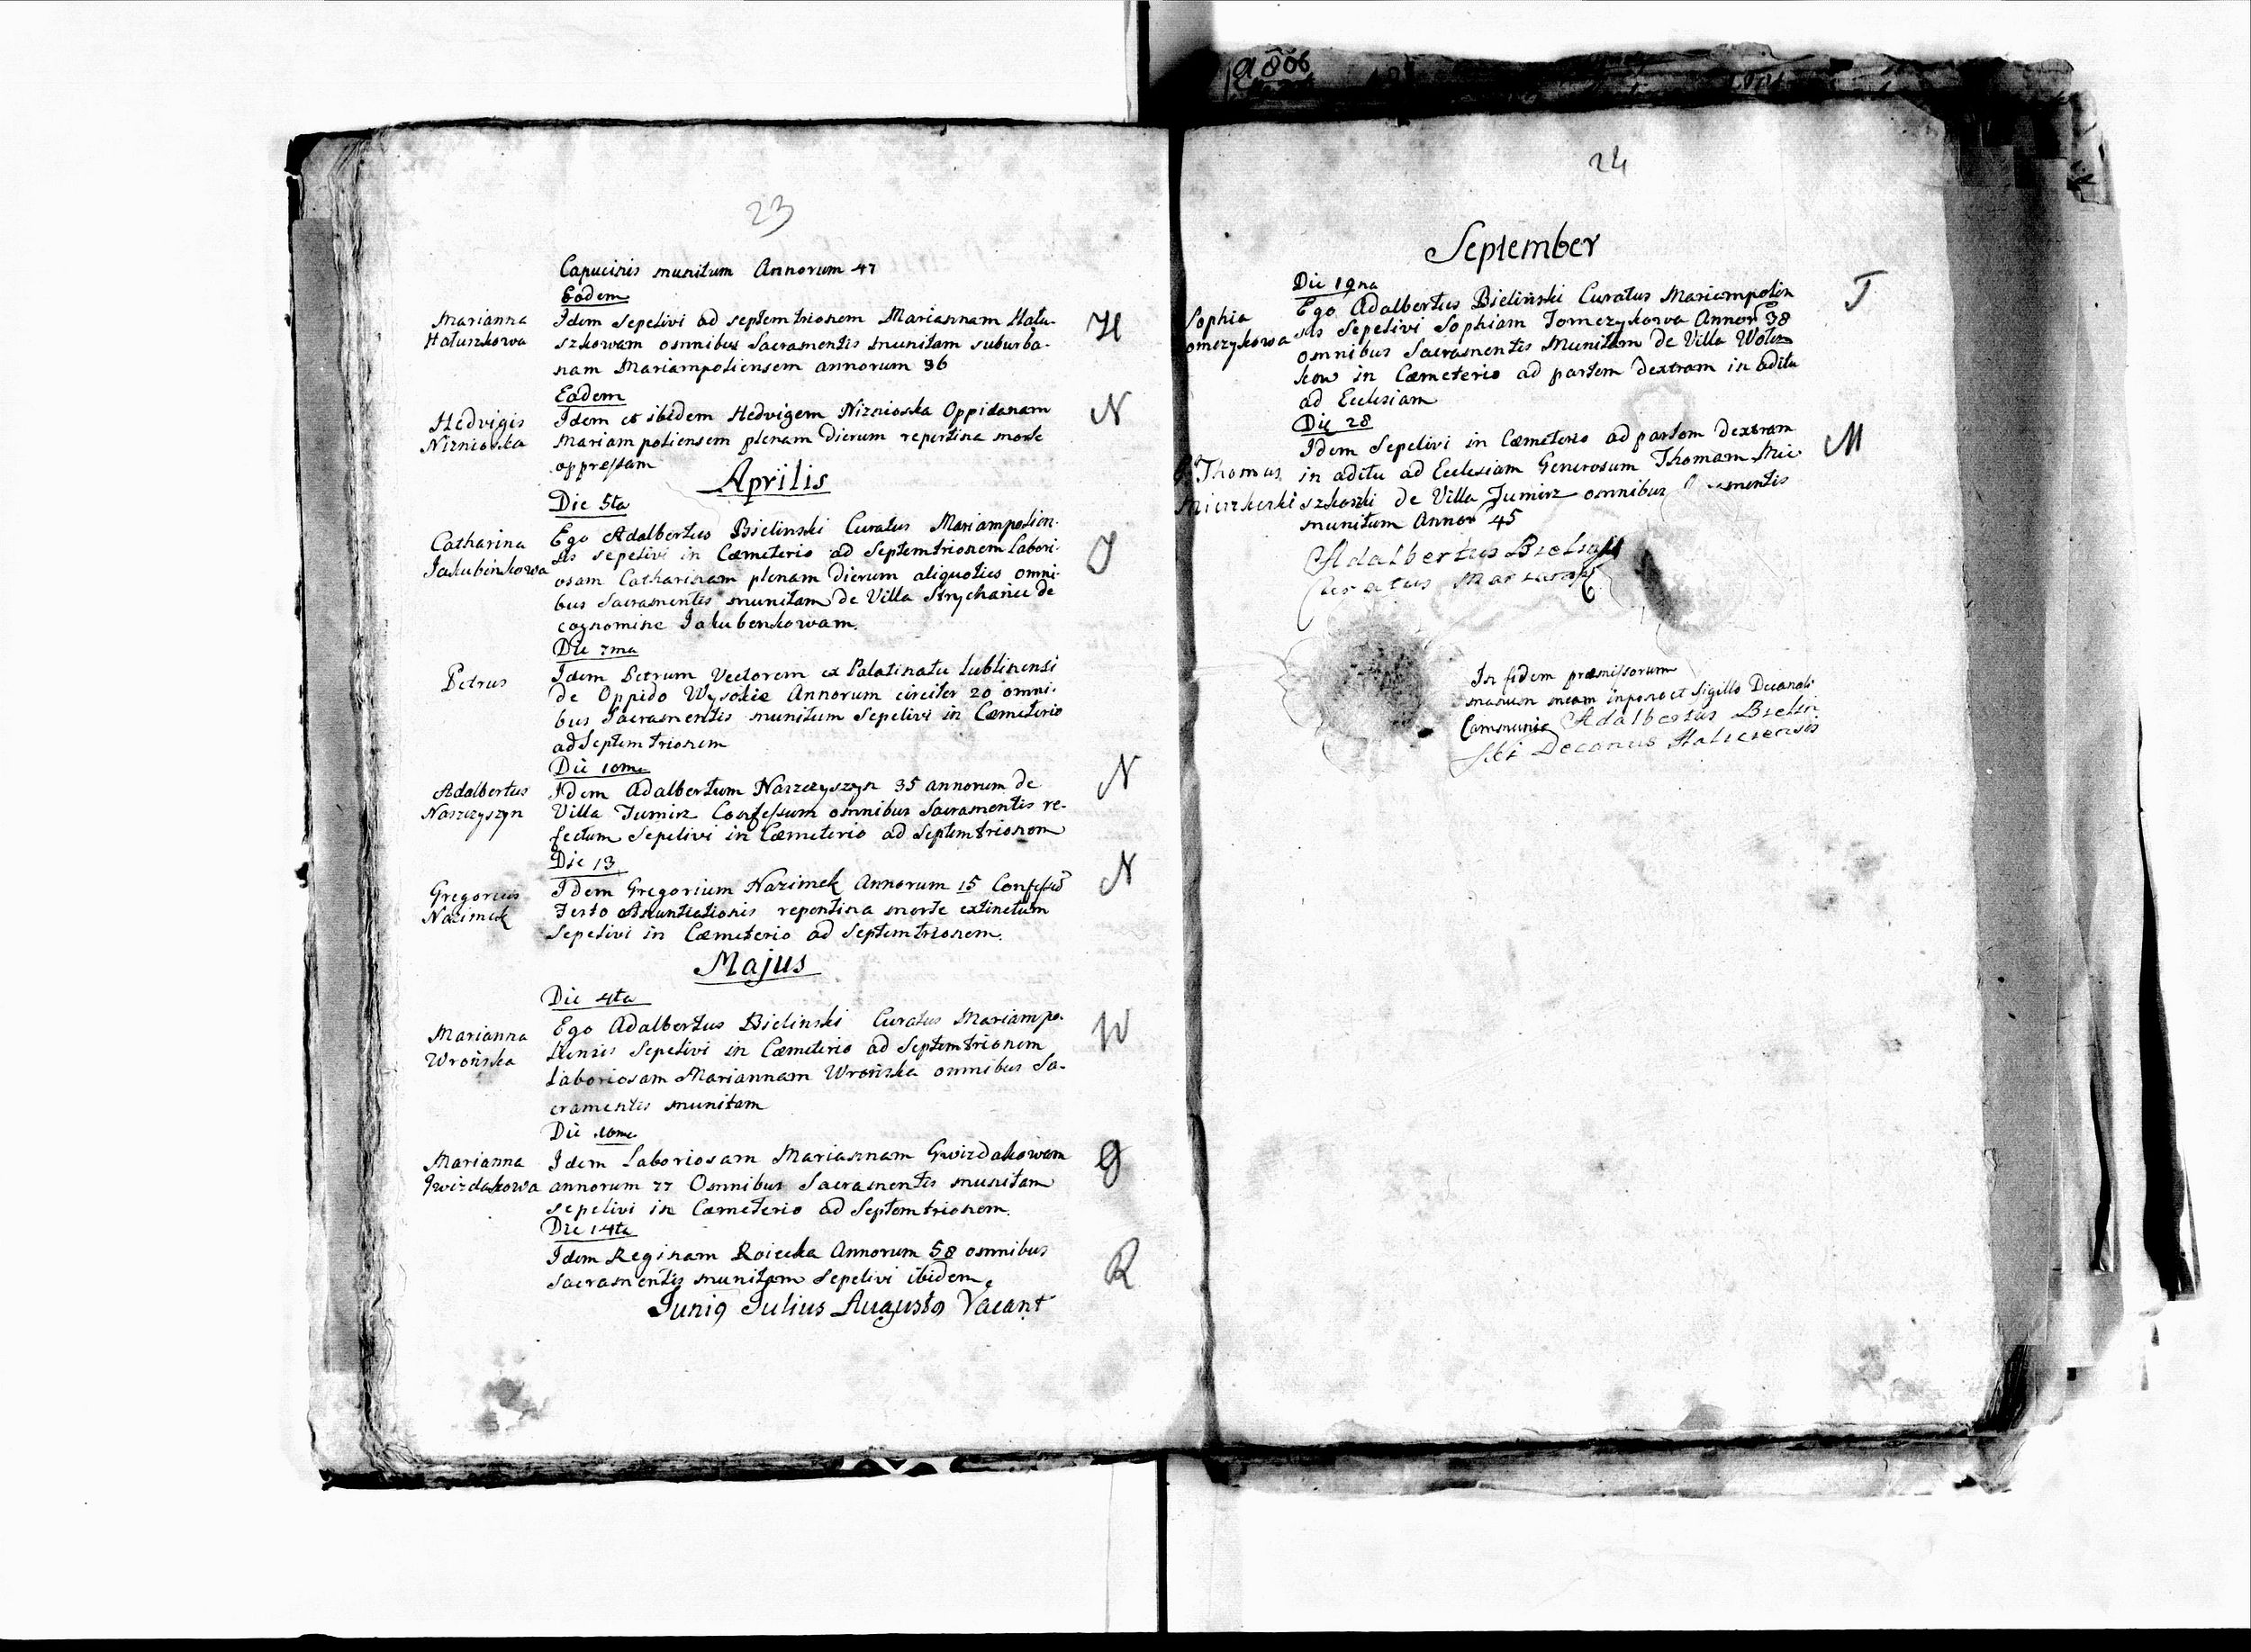 23
Capucinis munitum Annorum 47
Eadem
Marianna Hałuszkowa
Idem Sepelivi ad septemtrionem Mariannam Hału-
szkowam omnibus Sacramentis munitam suburba-
nam Mariampoliensem annorum 36
H
Eadem
Hedvigis Niznioska
Idem et ibidem Hedvigem Niznioska Oppidanam
Mariampoliensem plenam Dierum repentina morte
oppressam
N
Aprilis
Die 5ta
Catharina Jakubinkowa
Ego Adalbertus Bielinski Curatus Mariampolien-
sis sepelivi in Cæmeterio ad Septemtrionem Labori-
osam Catharinam plenam Dierum aliquoties omni-
bus Sacramentis munitam de Villa Strychańce de
cognomine Jakubenkowam.
J
Die 7ma
Petrus
Idem Petrum Vectorem ex Palatinatu Lublinensi
de Oppido Wysokie Annorum circiter 20 omni-
bus Sacramentis munitum Sepelivi in Cæmeterio
ad Septemtrionem
Die 10ma
Adalbertus Naszczyszyn
Idem Adalbertum Naszczyszyn 35 annorum de
Villa Tumirz Confessum omnibus Sacramentis re-
fectum Sepelivi in Cæmeterio ad Septemtrionem
N
Die 13
Gregorius Nazimek
Idem Gregorium Nazimek Annorum 15 Confessū
Festo Anuntiationis repentina morte extinctum
Sepelivi in Cæmeterio ad Septemtrionem.
N
Majus
Die 4ta
Marianna Wrońska
Ego Adalbertus Bielinski Curatus Mariampo-
liensis Sepelivi in Cæmeterio ad Septemtrionem
Laboriosam Mariannam Wrońska omnibus Sa-
cramentis munitam
W
Die 10ma
Marianna Gwizdakowa
Idem Laboriosam Mariannam Gwizdakowam
annorum 77 Omnibus Sacramentis munitam
sepelivi in Cæmeterio ad Septemtrionem.
G
Die 14ta
Idem Reginam Roiecka Annorum 58 omnibus
Sacramentis munitam Sepelivi ibidem.
R
Juni9 Julius August9 Vacant
1806
24
September
Die 19na
Sophia omczykowa
Ego Adalbertus Bieliński Curatus Mariampolien
sis Sepelivi Sophiam Tomczykowa Annor 38
omnibus Sacramentis Munitam de Villa Wołcz
kow in Cæmeterio ad partem dextram in aditu
ad Ecclesiam
T
Die 28
Thomas Mierzkoski
Idem Sepelivi in Cæmeterio ad partem Dextram
in aditu ad Ecclesiam Generosum Thomam Mie-
szkoski de Villa Tumirz omnibus mentis
munitum Annor 45
M
Adalbertus Bielinski
Curatus Mariamp
In fidem præmissorum
manum meam inpono et Sigillo Decanali
Communio Adalbertus Bielin
ski Decanus Haliciensis